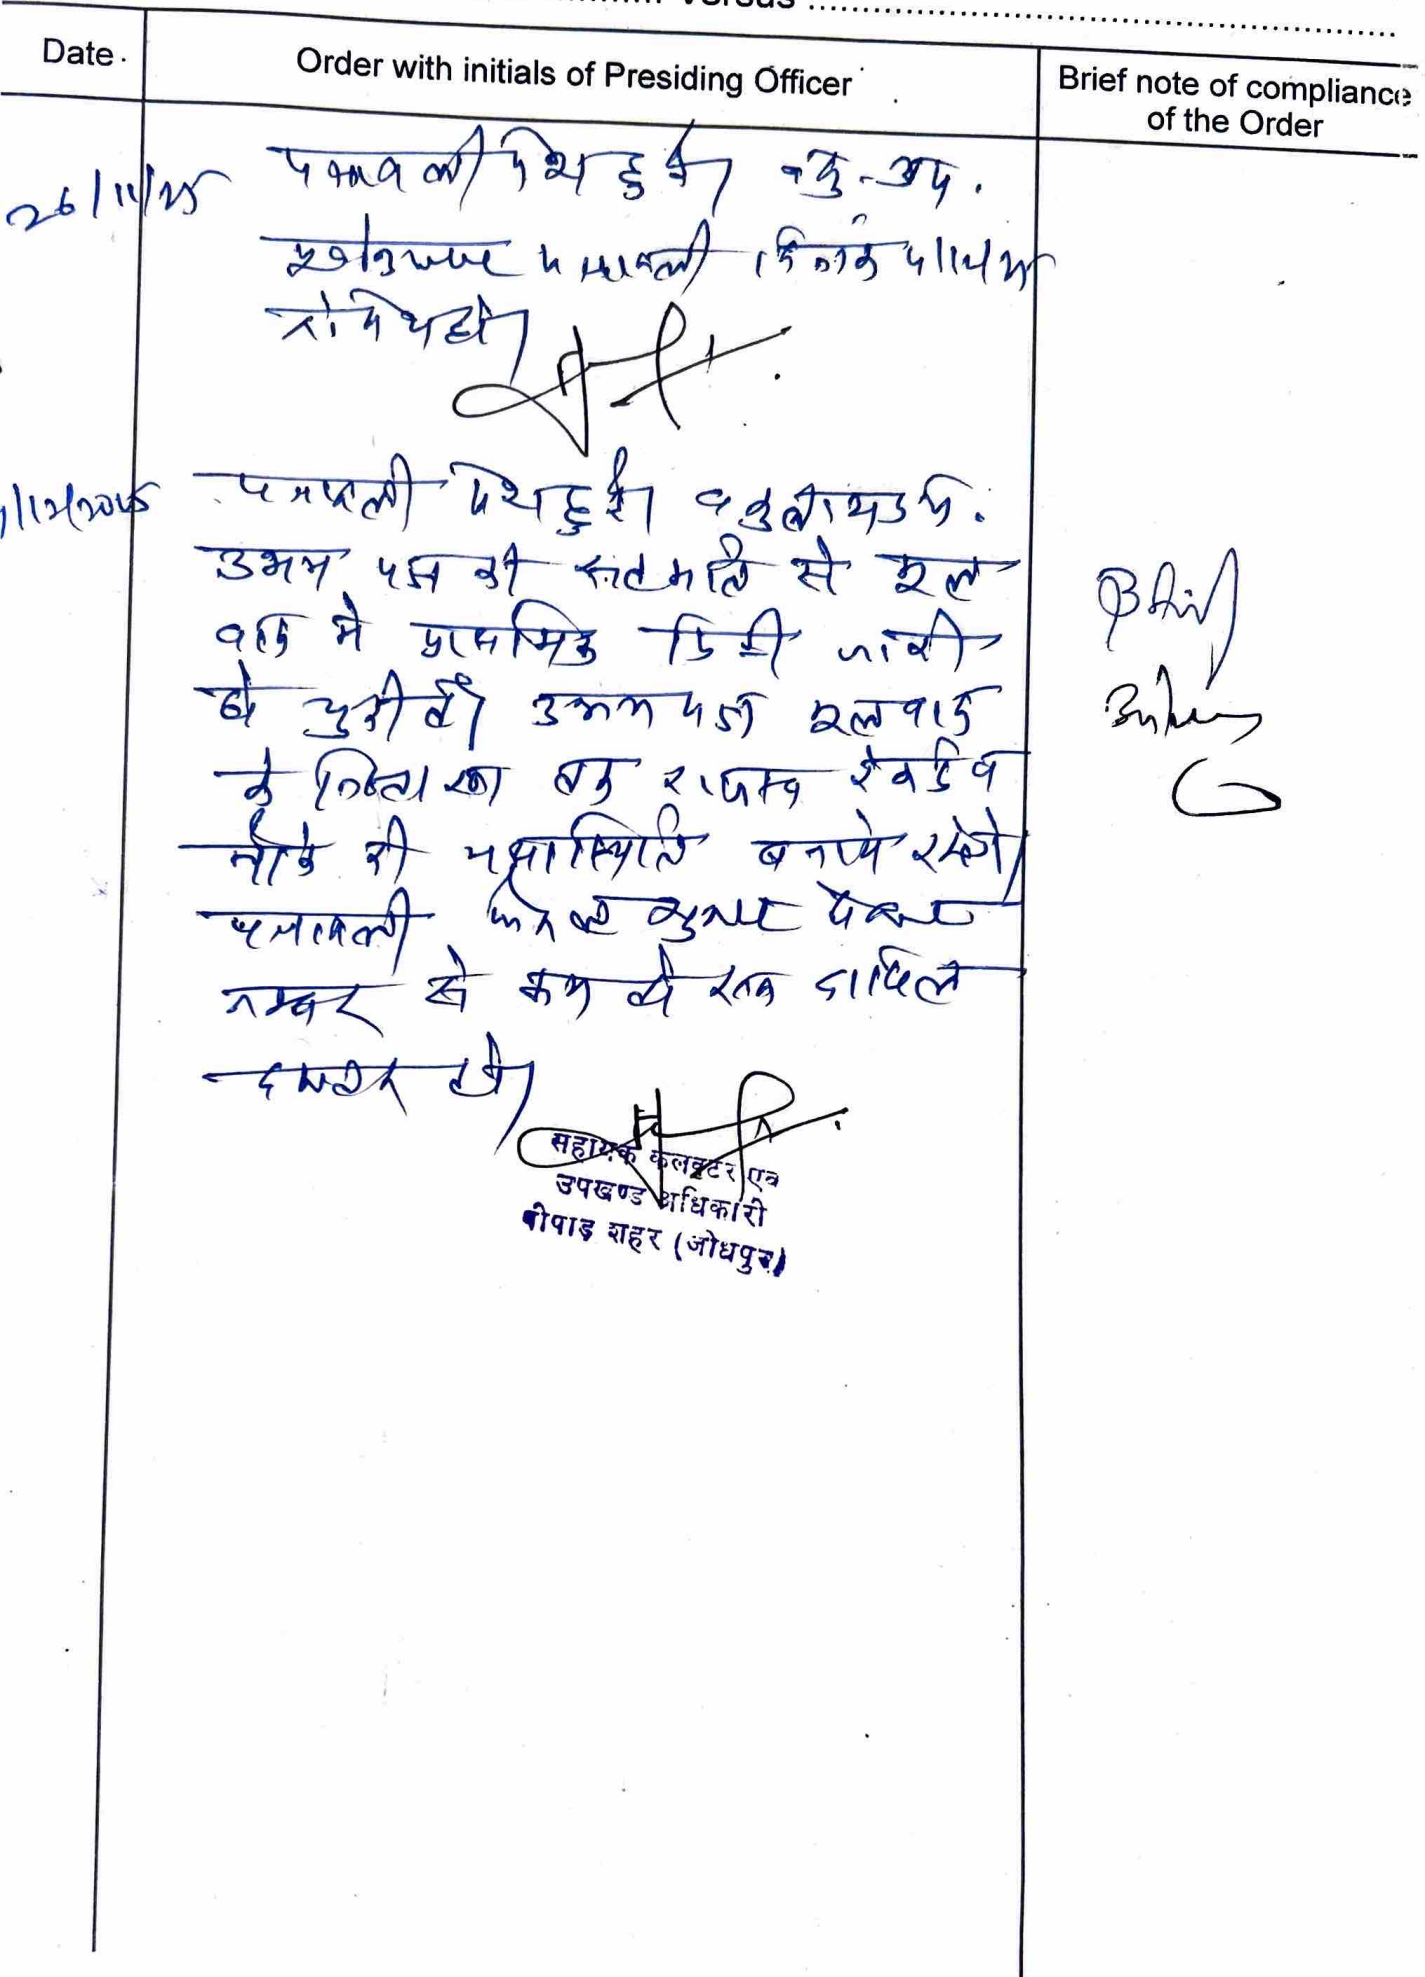 Versus
Date
Order with initials of Presiding Officer
Brief note of compliance
of the Order
26/11/25
पत्रावली पेश हुई। वकु. उप.
पत्रावली दिनांक
को पेश हो।
/12/2025
पत्रावली पेश हुई। वकुलाय उप.
उभय पक्ष की सहमति से मूल
वाद मे प्राथमिक डिक्री जारी
हो चुकी है। उभय पक्ष मूल वाद
के निस्तारण तक राजस्व रेकर्ड व
मौके की यथास्थिति बनाये रखेंगे।
पत्रावली फैसल शुमार होकर
नम्बर से कम हो दाखिल
दफ्तर हो।
सहायक कलक्टर एवं
उपखण्ड अधिकारी
पीपाड़ शहर (जोधपुर)